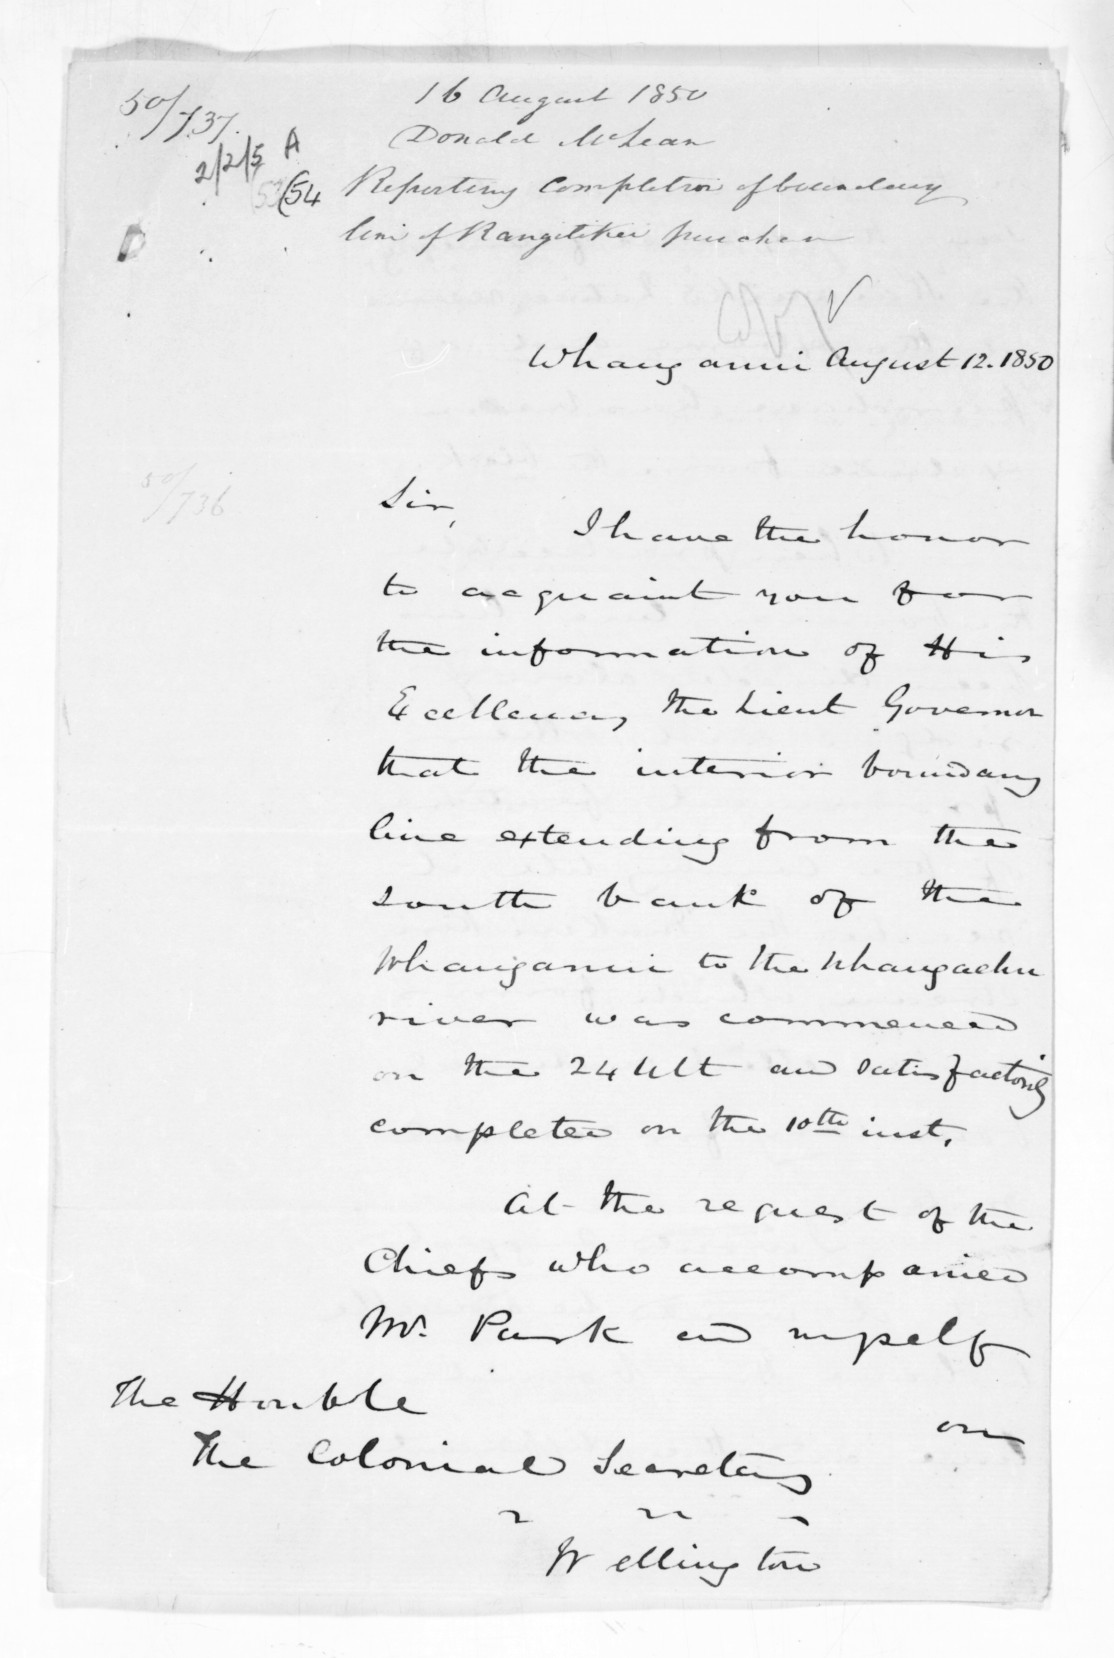 50/737.
16 August 1850
Donald McLean
2/2/5 A
53(54
Reporting Completion of boundary
line of Rangitikei purchase
Whanganui August 12. 1850
50/736
Sir,
I have the honor
to acquaint you for
the information of His
Excellency the Lieut Governor
that the interior boundary
line extending from the
south bank of the
Whanganui to the Whangaehu
river was commenced
on the 24 Ult and satisfactorily
completed on the 10th inst,
At the request of the
Chiefs who accompanied
Mr. Park and myself
on
The Honble
The Colonial Secretary
Wellington